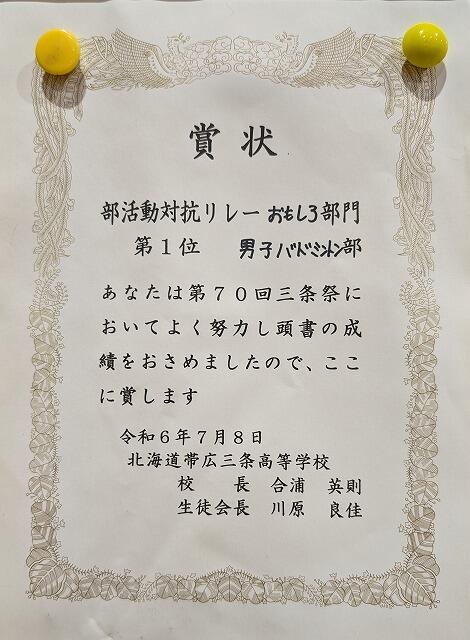 賞状
部活動対抗リレーおもしろ部門
第1位 男子バドミントン部
あなたは第70回三条祭に
おいてよく努力し頭書の成
績をおさめましたので、ここ
に賞します
令和6年7月8日
北海道帯広三条高等学校
校長 合浦 英則
生徒会長 川原 良佳